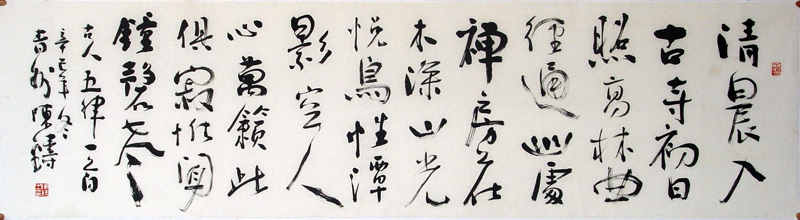 清晨入
古寺初日
照高林曲
徑通幽處
禪房花
木深山光
悅鳥性潭
影空人
心萬籟此
俱寂惟聞
鐘磬音
古人五律一首
辛巳年冬
青州陳